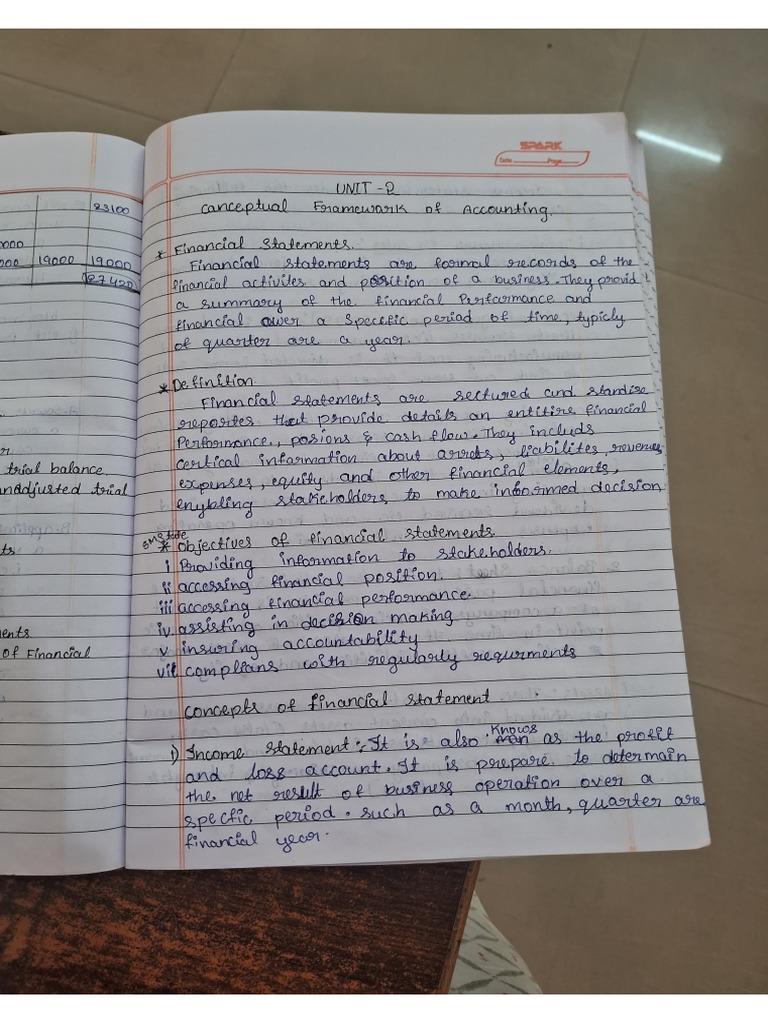 SPARK
Date Page
23100
000
000 19000 19000
127420
trial balance
nadjusted trial
ts
ents
of Financial
UNIT - 2
Conceptual Framework of Accounting.
* Financial Statements.
Financial statements are formal records of the
financial activites and position of a business. They provid
a summary of the financial Performance and
financial over a Specific period of time, typicly
of quarter are a year.
* Definition
Financial statements are sectured and standise
reportes that provide details an entitire financial
Performance., posions & cash flow. They includs
certical information about arrets, liabilites, revenues
expenses, equity and other financial elements,
enybling stakeholders to make informed decision
* Objectives of financial statements.
i Providing information to stakeholders.
ii accessing financial position.
iii accessing financial performance.
iv. assisting in decision making
v insuring accountability
vii compleans with regularly requrments
Concepts of financial statement
i) Income statement :- It is also knows as the profit
and loss account. It is prepare to determain
the net result of business operation over a
specfic period. such as a month, quarter are
financial year.